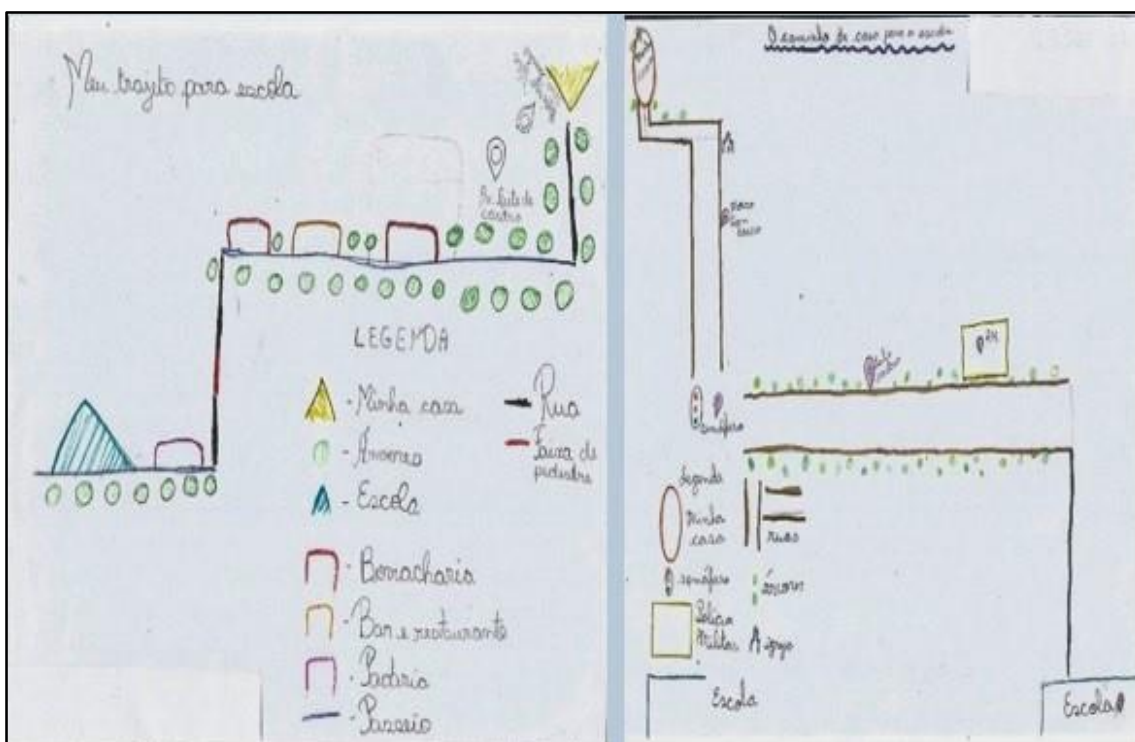 Meu trajeto para escola
Av. Leite de
castro
LEGENDA
- Minha casa
- Árvores
- Escola
- Borracharia
- Bar e restaurante
- Padaria
- Passeio
- Rua
- Faixa de
pedestre
O caminho de casa para a escola
semáforo
Legenda
Minha
casa
ruas
semáforo
árvores
Polícia
Militar
igreja
Escola
Escola